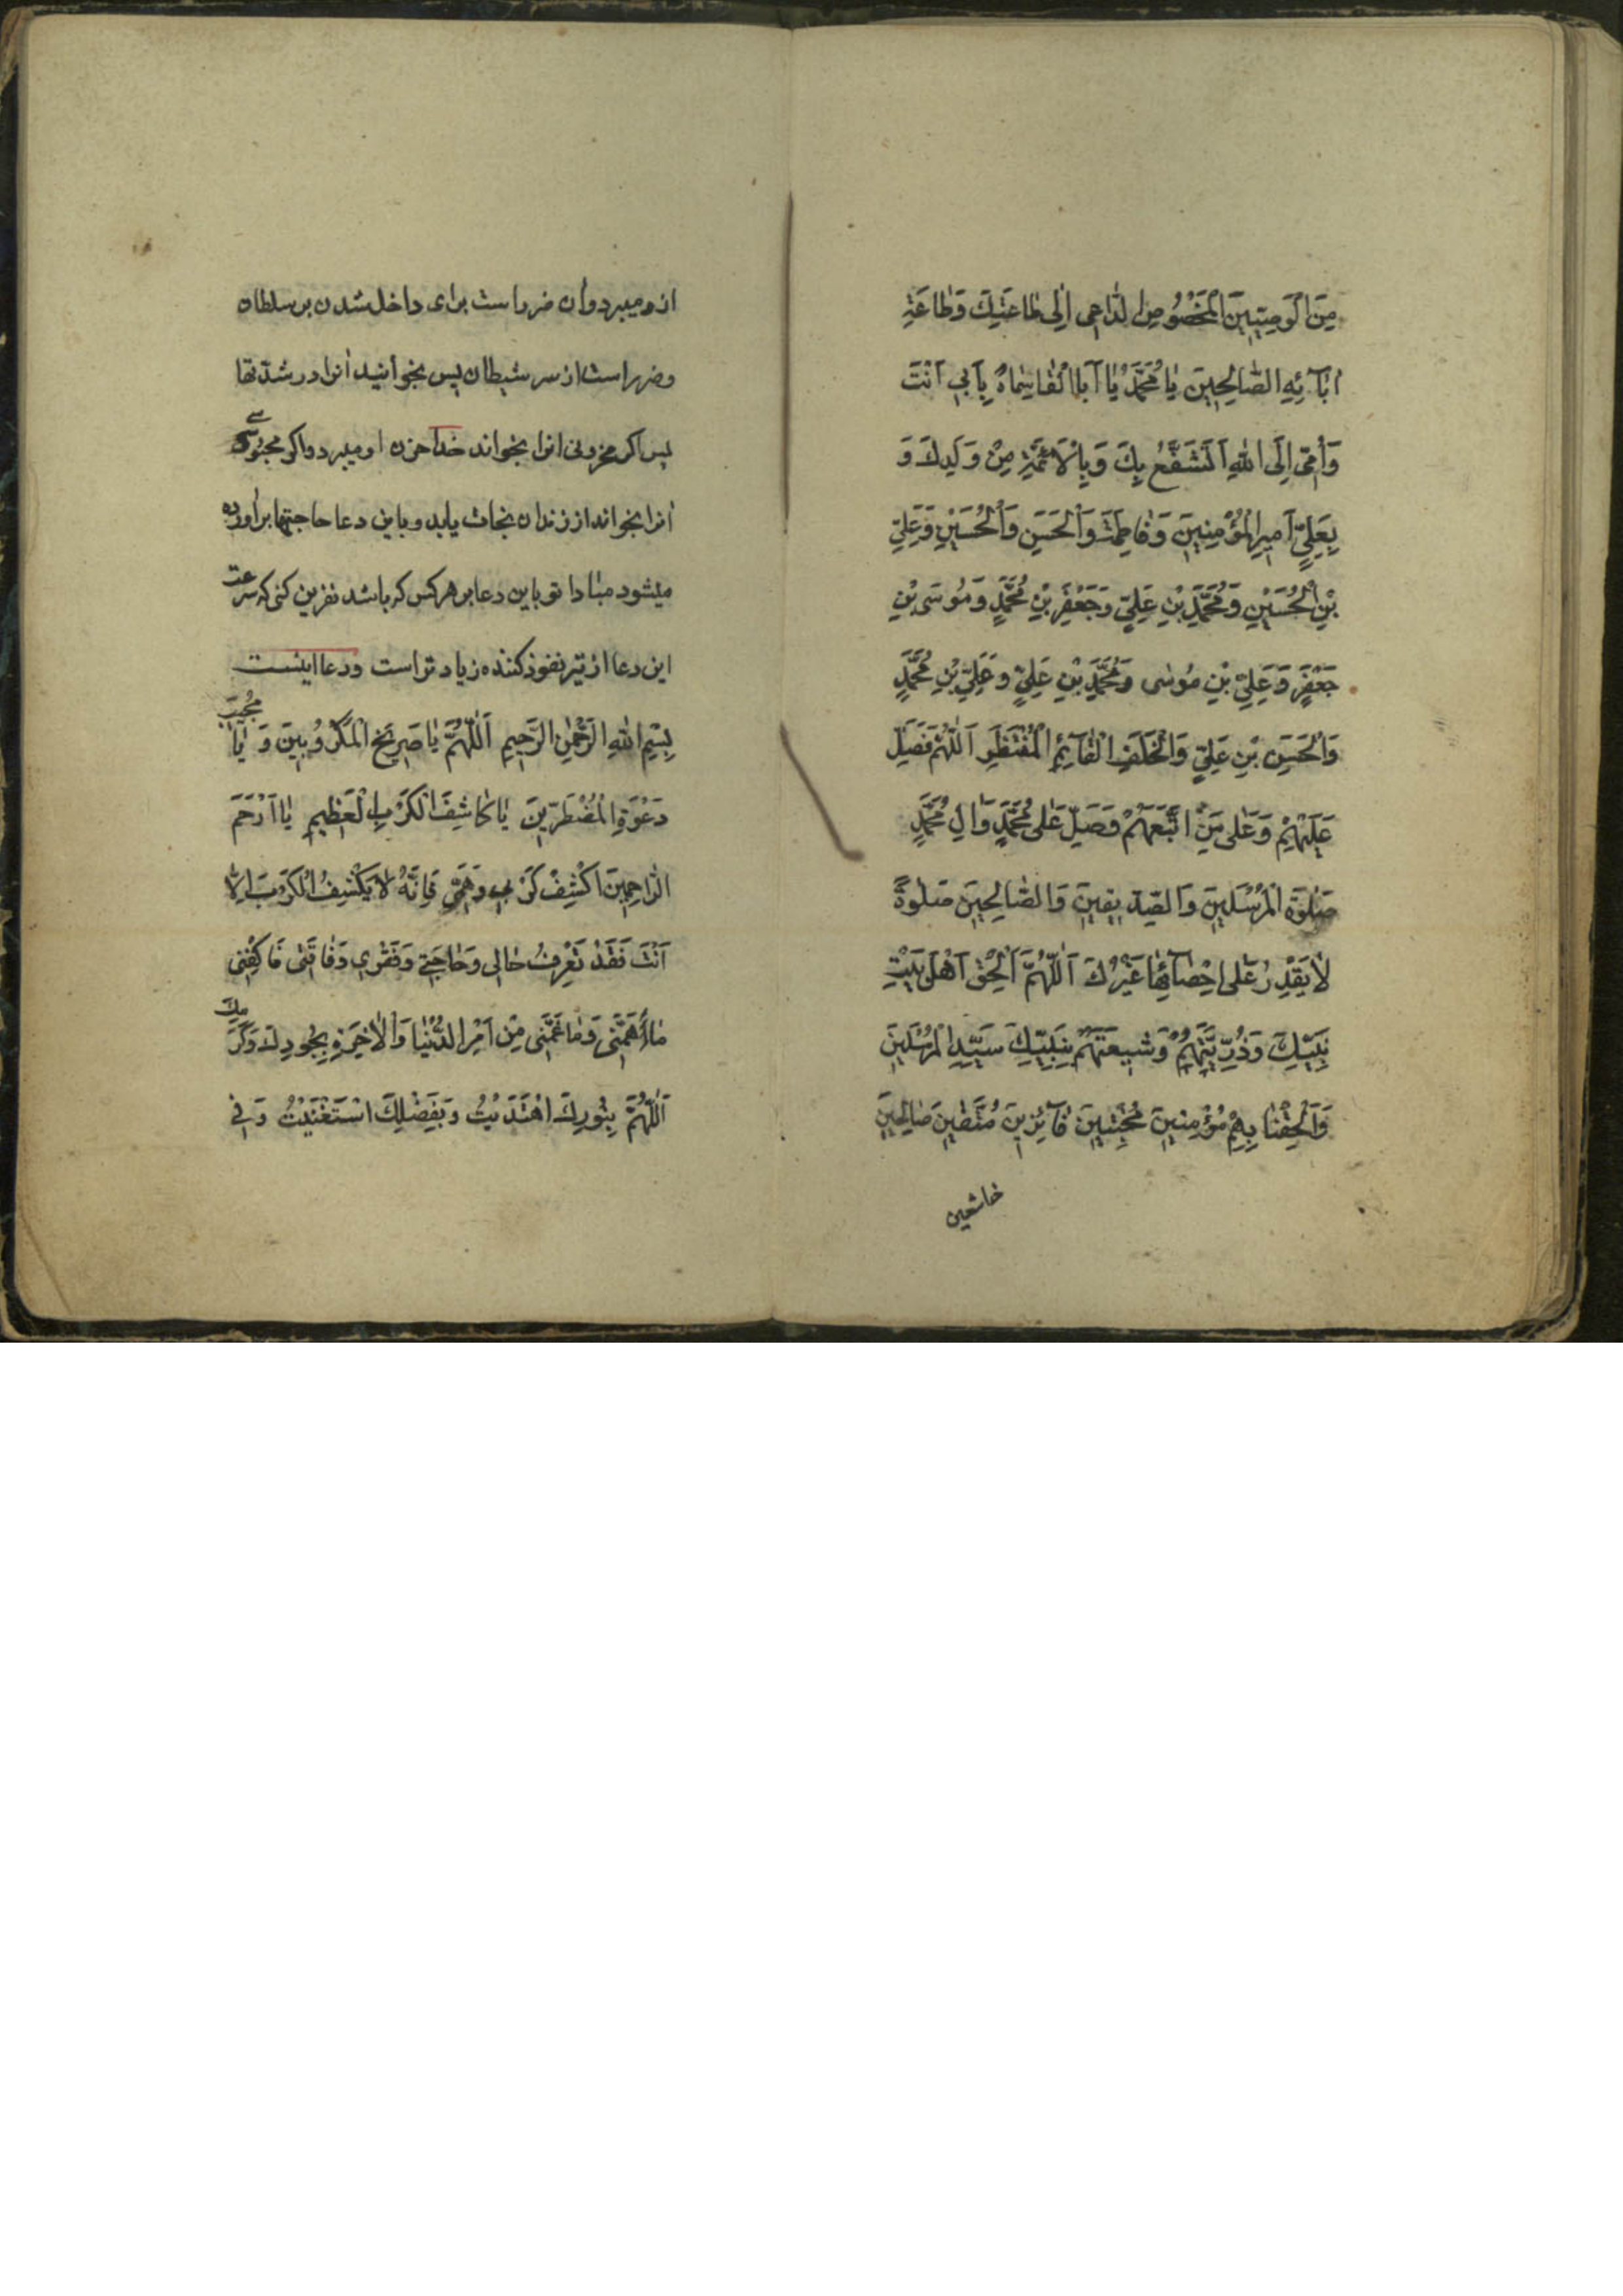 مِنَ الْوَصِيّينَ الْمَخْصُوصِ الدّاعِى اِلٰى طاعَتِكَ وَطاعَةِ
اٰبآئِهِ الصّالِحِينَ يا مُحَمَّدُ يا اَبَا الْقاسِماهُ بِاَبِى اَنْتَ
وَاُمّى اِلَى اللهِ اَتَشَفَّعُ بِكَ وَبِالْاَئِمَّةِ مِنْ وَلَدِكَ وَ
بِعَلِيٍّ اَمِيرِ الْمُؤْمِنِينَ وَفاطِمَةَ وَالْحَسَنِ وَالْحُسَيْنِ وَعَلِيِّ
بْنِ الْحُسَيْنِ وَمُحَمَّدِ بْنِ عَلِيٍّ وَجَعْفَرِ بْنِ مُحَمَّدٍ وَمُوسَى بْنِ
جَعْفَرٍ وَعَلِيِّ بْنِ مُوسٰى وَمُحَمَّدِ بْنِ عَلِيٍّ وَعَلِيِّ بْنِ مُحَمَّدٍ
وَالْحَسَنِ بْنِ عَلِيٍّ وَالْخَلَفِ الْقآئِمِ الْمُنْتَظَرِ اَللّٰهُمَّ فَصَلِّ
عَلَيْهِمْ وَعَلٰى مَنِ اتَّبَعَهُمْ وَصَلِّ عَلٰى مُحَمَّدٍ وَاٰلِ مُحَمَّدٍ
صَلٰوةَ الْمُرْسَلينَ وَالصِّدّيقينَ وَالصّالِحينَ صَلٰوةً
لا يَقْدِرُ عَلٰى اِحْصآئِها غَيْرُكَ اَللّٰهُمَّ اَلْحِقْ اَهْلَ بَيْتِ
نَبِيِّكَ وَذُرِّيَّتَهُمْ وَشيعَتَهُمْ بِنَبِيِّكَ سَيِّدِ الْمُرْسَلينَ
وَاَلْحِقْنا بِهِمْ مُؤْمِنينَ مُخْبِتينَ فآئِزينَ مُتَّقينَ صالِحينَ
خاشعين
از و میبرد و ان ضرر است برای داخل شدن بر سلطان
از سر شیطان پس بخوانید انرا در شدّتها
پس اکر مخزونی انرا بخواند خدا حزن او میبرد و اکر محبوسی
انرا بخواند از زندان نجات یابد و باین دعا حاجتها براورده
میشود مبادا تو باین دعا بر هر کس که باشد نفرین کنی که سرعت
این دعا از تیر نفوذ کننده زیاد تر است و دعا اینست
بِسْمِ اللهِ الرَّحْمٰنِ الرَّحِيمِ اَللّٰهُمَّ يا صَرِيخَ الْمَكْرُوبِينَ وَ يا مُجيبَ
دَعْوَةِ الْمُضْطَرّينَ يا كاشِفَ الْكَرْبِ الْعَظِيمِ يا اَرْحَمَ
الرّاحِمِينَ اكْشِفْ كَرْبى وَهَمّى فَاِنَّهُ لا يَكْشِفُ الْكَرْبَ اِلّا
اَنْتَ فَقَدْ تَعْرِفُ حالى وَحاجَتى وَفَقْرى وَفاقَتى فَاكْفِنى
ما اَهَمَّنى وَما غَمَّنى مِنْ اَمْرِ الدُّنْيا وَالْاٰخِرَةِ بِجُودِكَ وَكَرَمِكَ
اَللّٰهُمَّ بِنُورِكَ اهْتَدَيْتُ وَبِفَضْلِكَ اسْتَغْنَيْتُ وَفى